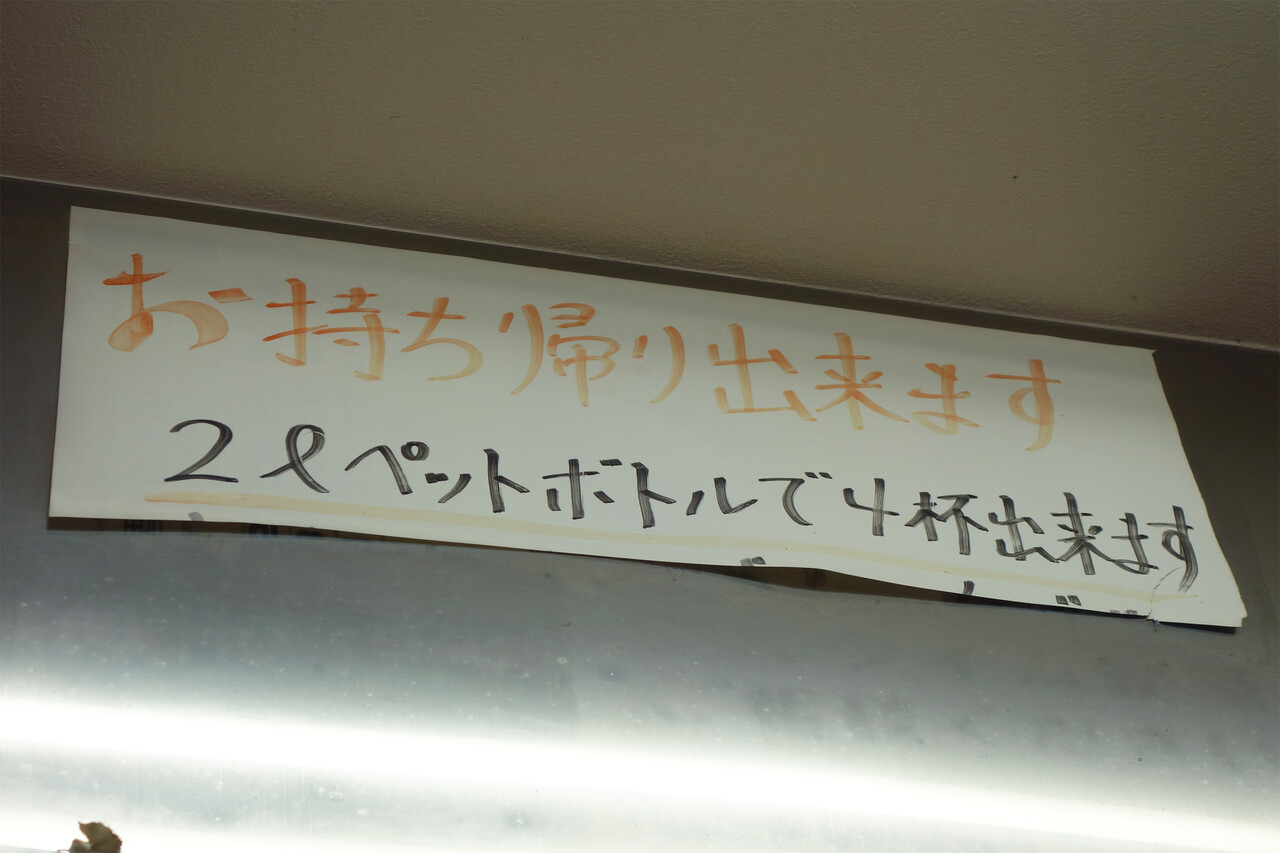 お持ち帰り出来ます
2ℓペットボトルで4杯出来ます